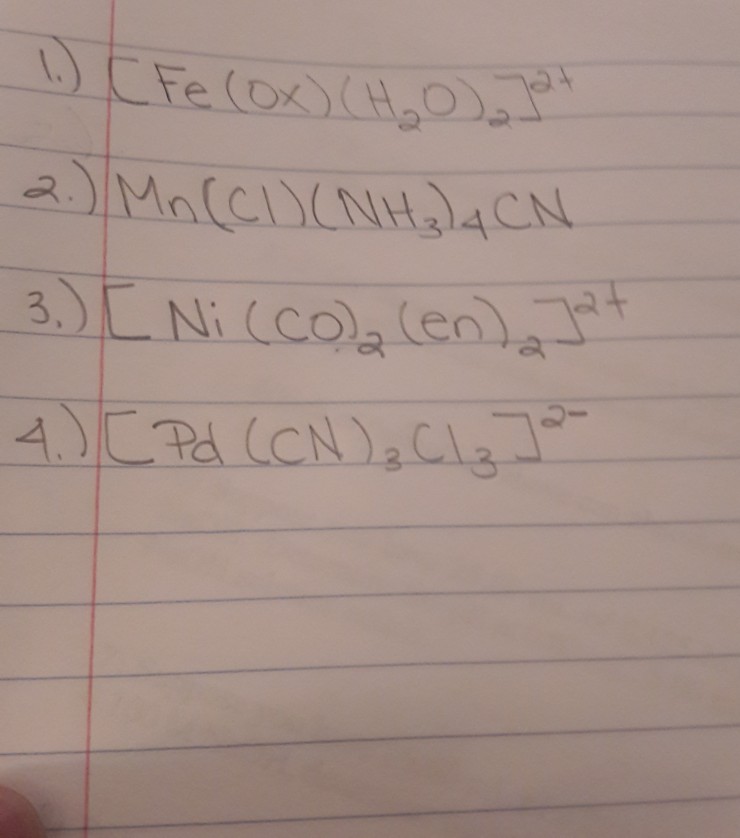 1.) [Fe(Ox)(H₂O)₂]²⁺
2.) Mn(Cl)(NH₃)₄CN
3.) [Ni(CO)₂(en)₂]²⁺
4.) [Pd(CN)₃Cl₃]²⁻